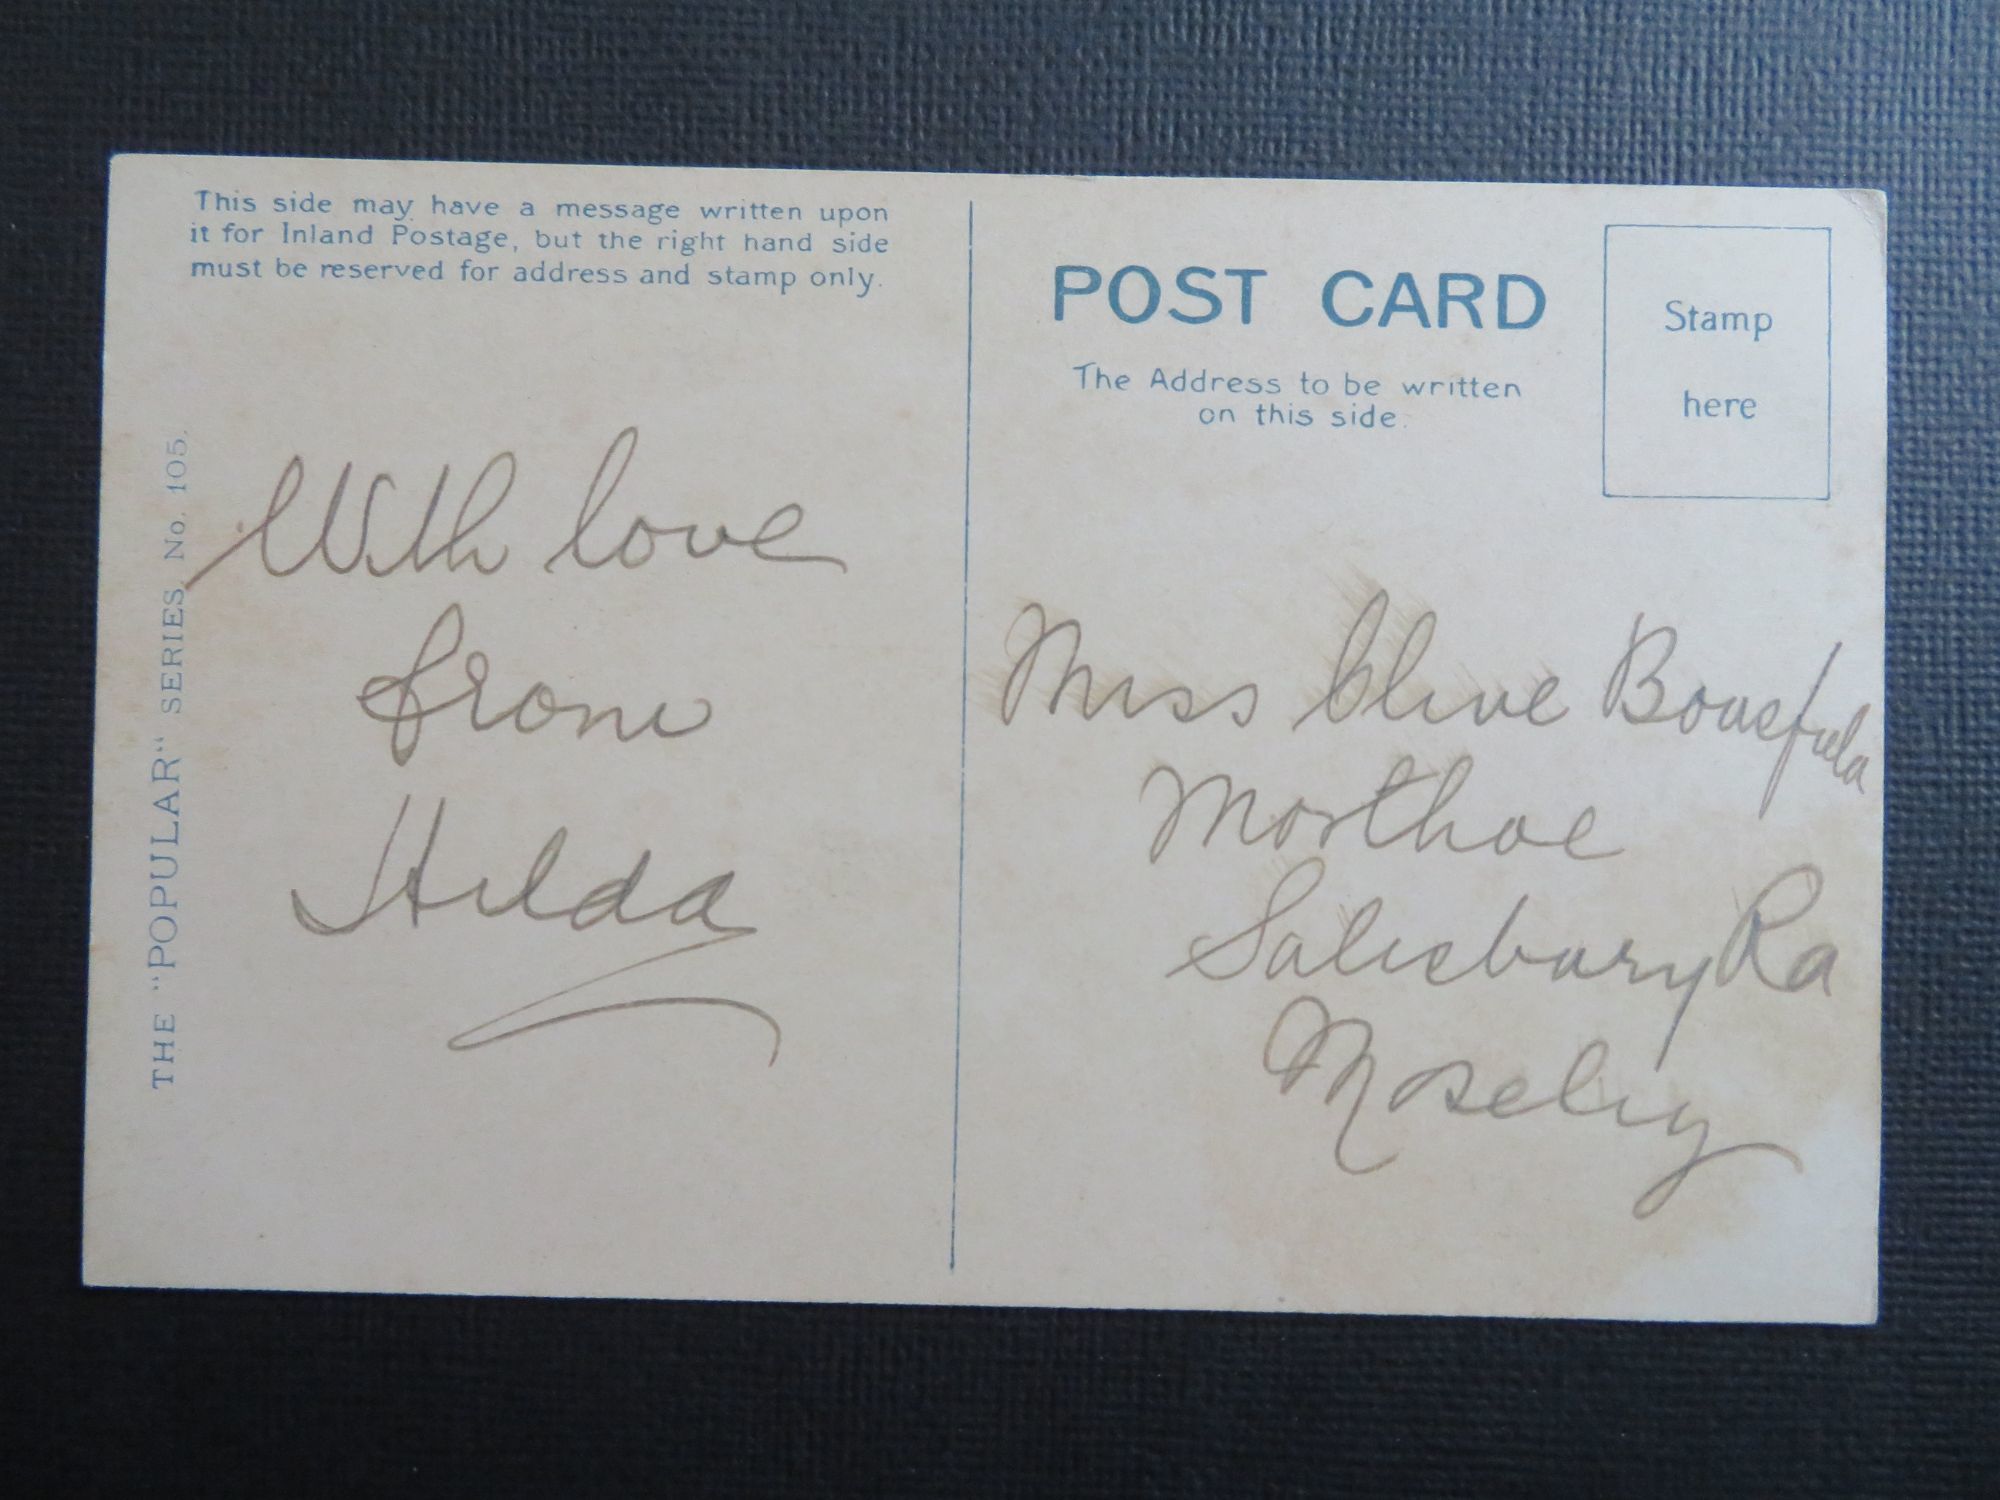 This side may have a message written upon
it for Inland Postage, but the right hand side
must be reserved for address and stamp only.
THE "POPULAR" SERIES. No. 105.
With love
from
Hilda
POST CARD
The Address to be written
on this side.
Stamp
here
Miss Olive
Morthoe
Salisbury Rd
Moseley